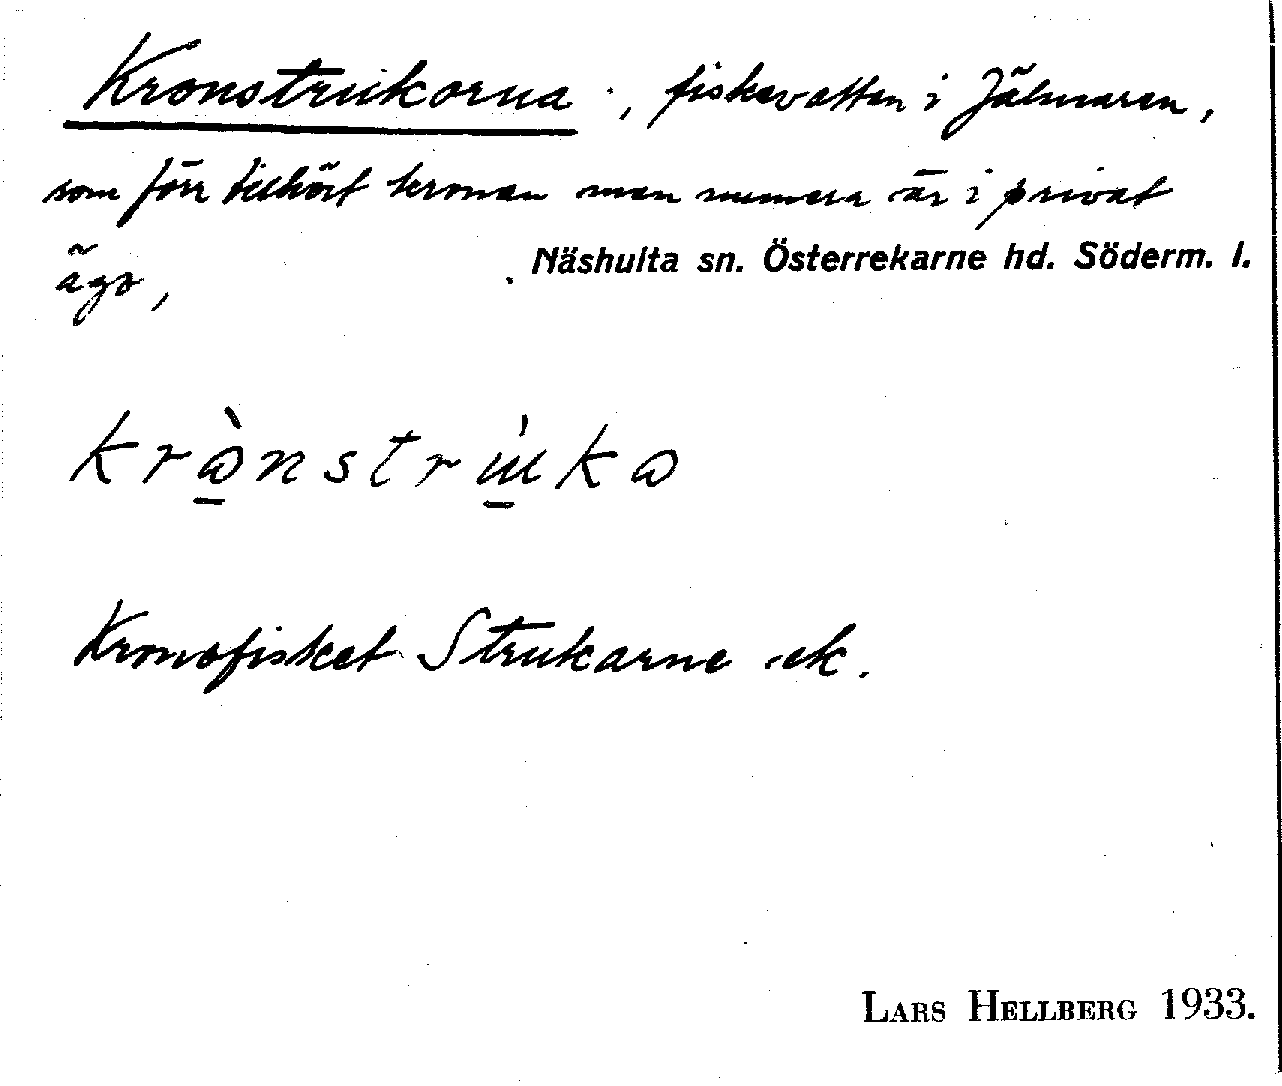 Kronstrukorna, fiskevatten i Jälmaren,
som förr tillhört kronan men numera är i privat
ägo,
Näshulta sn. Österrekarne hd. Söderm. l.
krò̱nstrù̱ko
Kronofisket Strukarne ek.
LARS HELLBERG 1933.